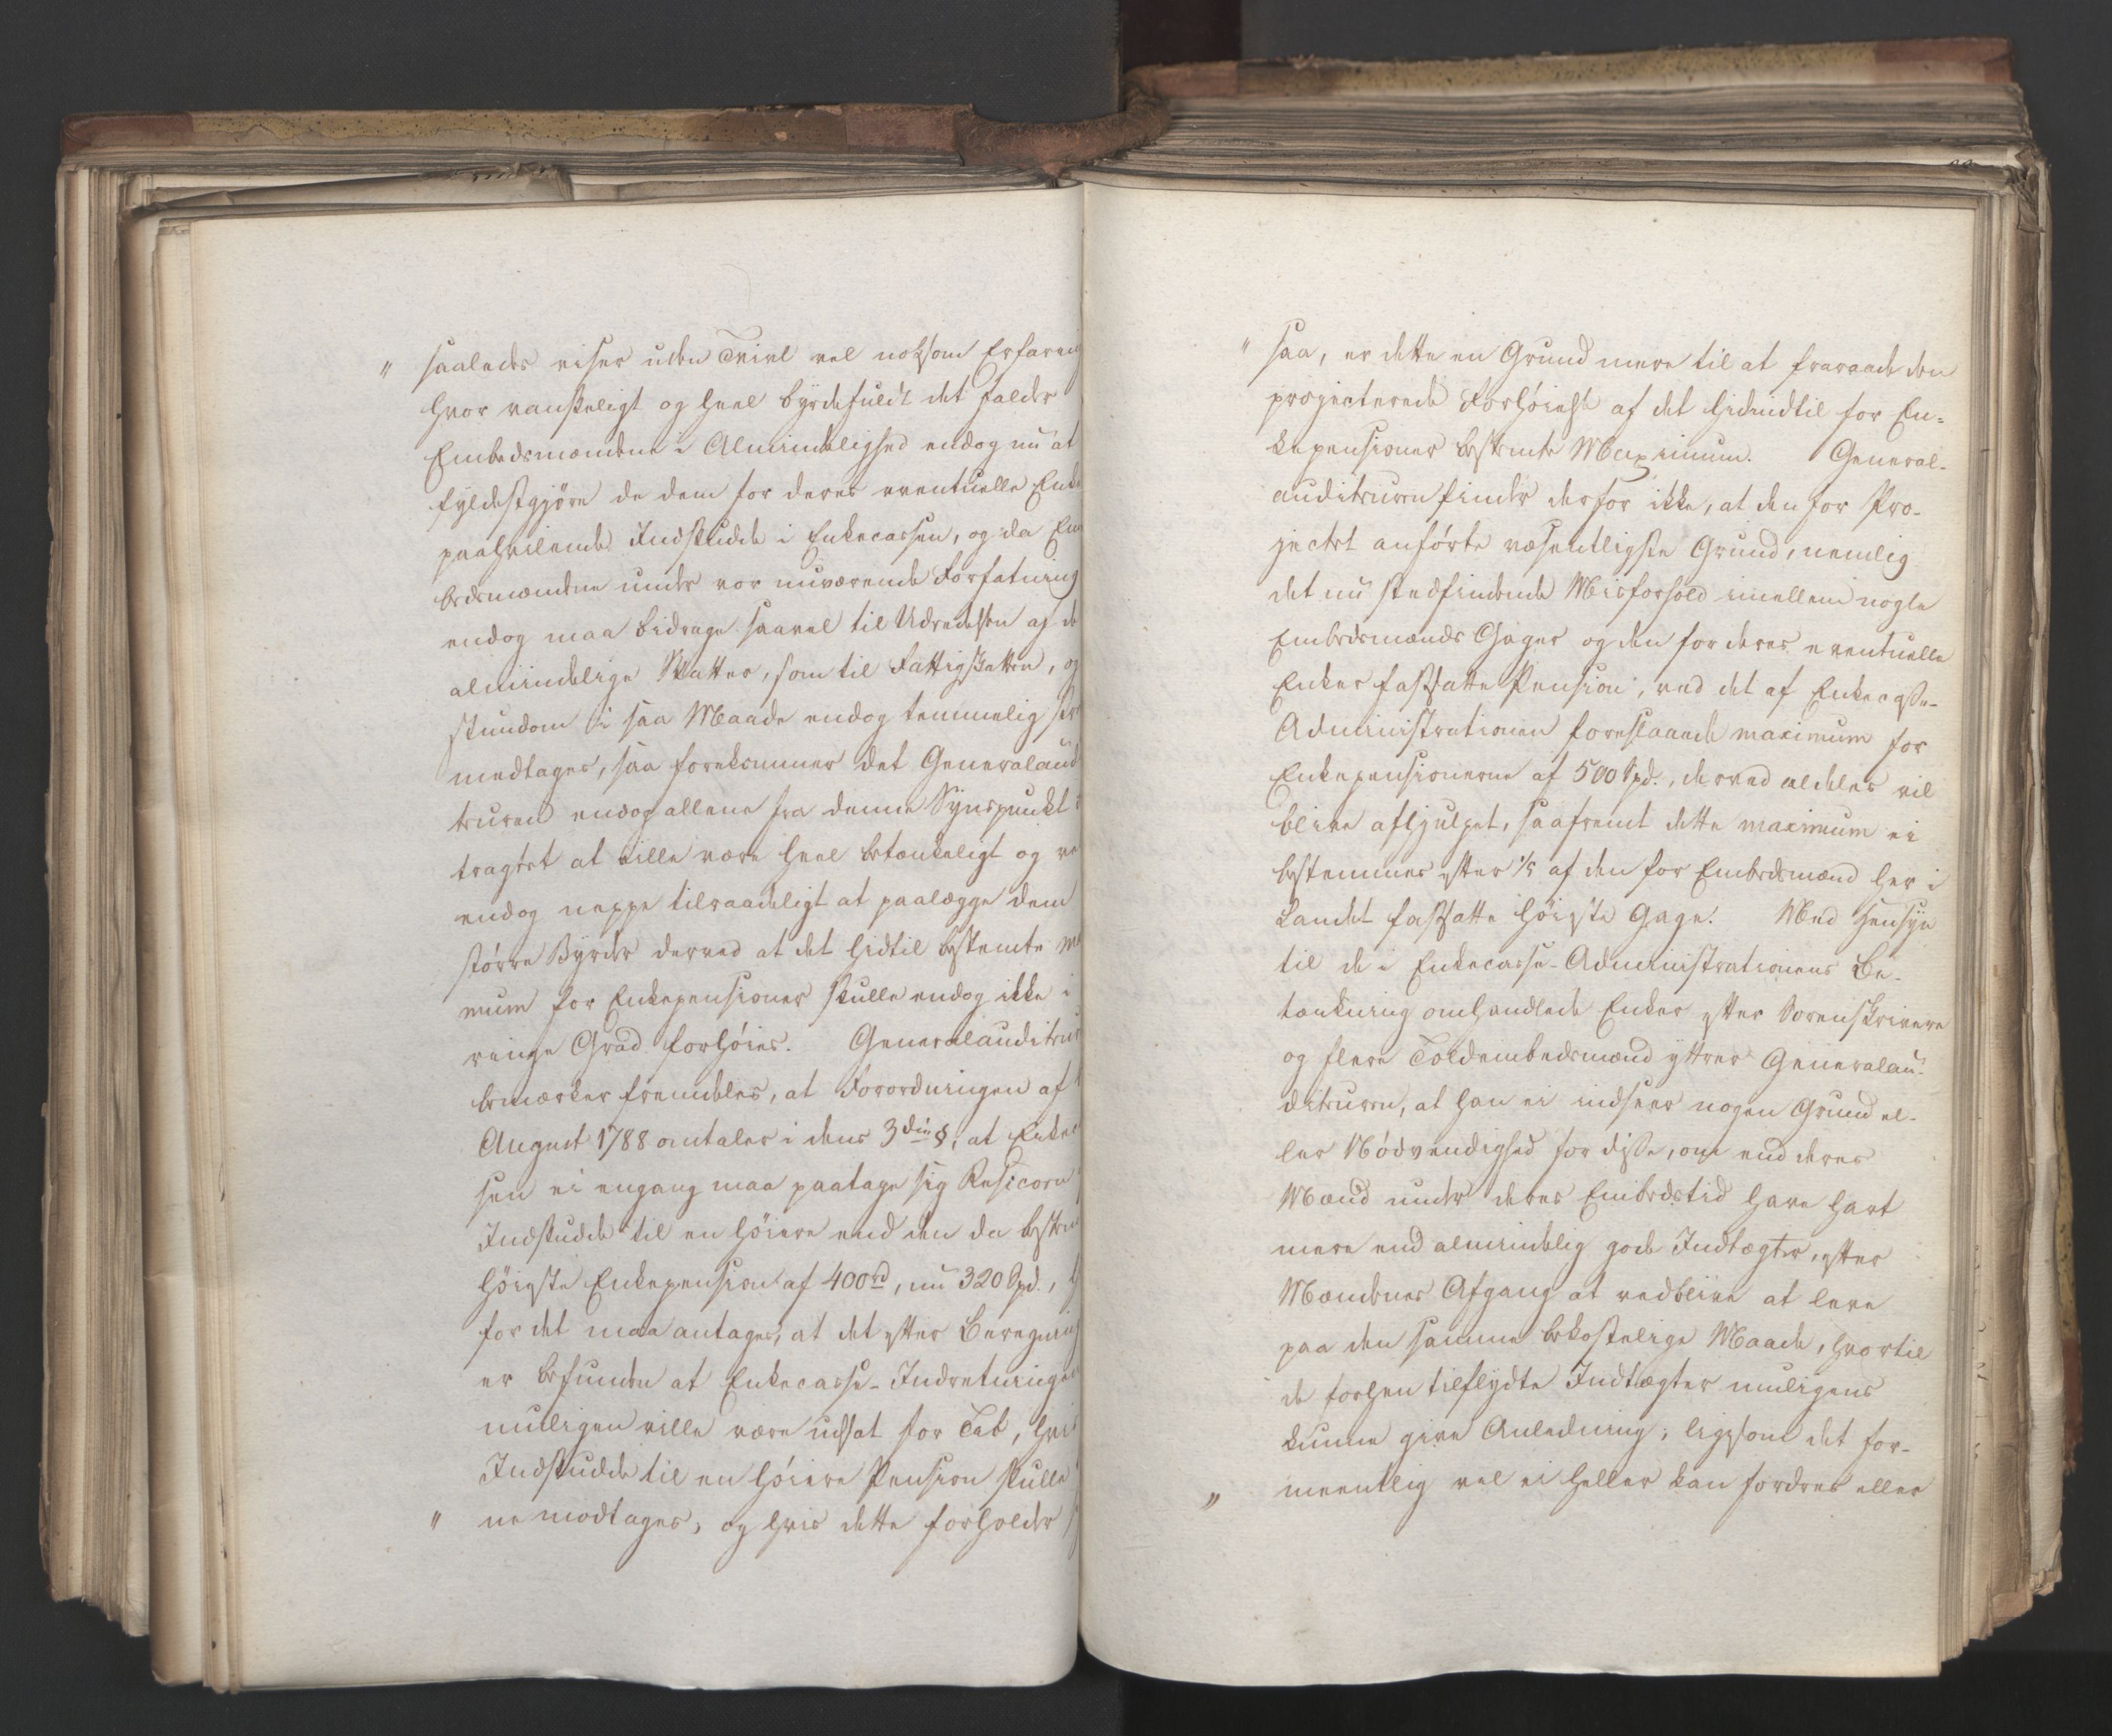 " saaledes viser uden Tvivl vel noksom Erfaring
hvor vanskeligt og heel byrdefuldt det falder
Embedsmændene i Almindelighed endog nu at
fyldestgjøre de dem for deres eventuelle Enk
paahvilende Indskudde i Enkecassen, og da Em
bedsmændene under vor nuværende Forfatning
endog maa bidrage saavel til Udredelsen af de
almindelige Skatter, som til Fattigskatten, og
stundom i saa Maade endog temmelig
medtages, saa forekommer det Generalaud
teuren endog allene fra denne Synspunkt
tragtet at ville være heel betænkeligt og
endog neppe tilraadeligt at paalægge dem
større Byrder derved at det hidtil bestemte
mum for Enkepensioner skulle endog ikke i
ringe Grad forhøies. Generalauditeu
bemærker fremdeles, at Forordningen af
August 1788 omtaler i dens 3die §, at Enkec
sen ei engang maa paatage sig Resicoen
Indskudde til en høiere end den da bestem
høigste Enkepension af 400rd, nu 320 Spd.,
for det maa antages, at det efter Beregning
er befunden at Enkecasse-Indretningen
muligen ville være udsat for Tab, hvis
Indskudde til en høiere Pension skulle
" ne modtages, og hvis dette forholder
" saa, er dette en Grund mere til at fraraade den
projecterede Forhøielse af det hidindtil for En-
kepensioner bestemte Maximum. General-
auditeuren finder derfor ikke, at den for Pro-
jectet anførte væsentligste Grund, nemlig
det nu stedfindende Misforhold imellem nogle
Embedsmænds Gager og den for deres eventuelle
Enker fastsatte Pension, ved det af Enkecasse-
Administrationen foreslaaede maximum for
Enkepensionerne af 500 Spd., derved aldeles vil
blive afhjulpet, saafremt dette maximum ei
bestemmes efter 1/5 af den for Embedsmænd her i
Landet fastsatte høigste Gage. Med Hensyn
til de i Enkecasse-Administrationens Be-
tænkning omhandlede Enker efter Sorenskrivere
og flere Toldembedsmænd yttrer Generalau-
diteuren, at han ei indseer nogen Grund el-
ler Nødvendighed for disse, om end deres
Mænd under deres Embedstid have havt
mere end almindelig gode Indtægter, efter
Mændenes Afgang at vedblive at leve
paa den samme bekostelige Maade, hvortil
de forhen tilflydte Indtægter muligens
kunne give Anledning; ligesom det for-
" meentlig vel ei heller kan fordres eller